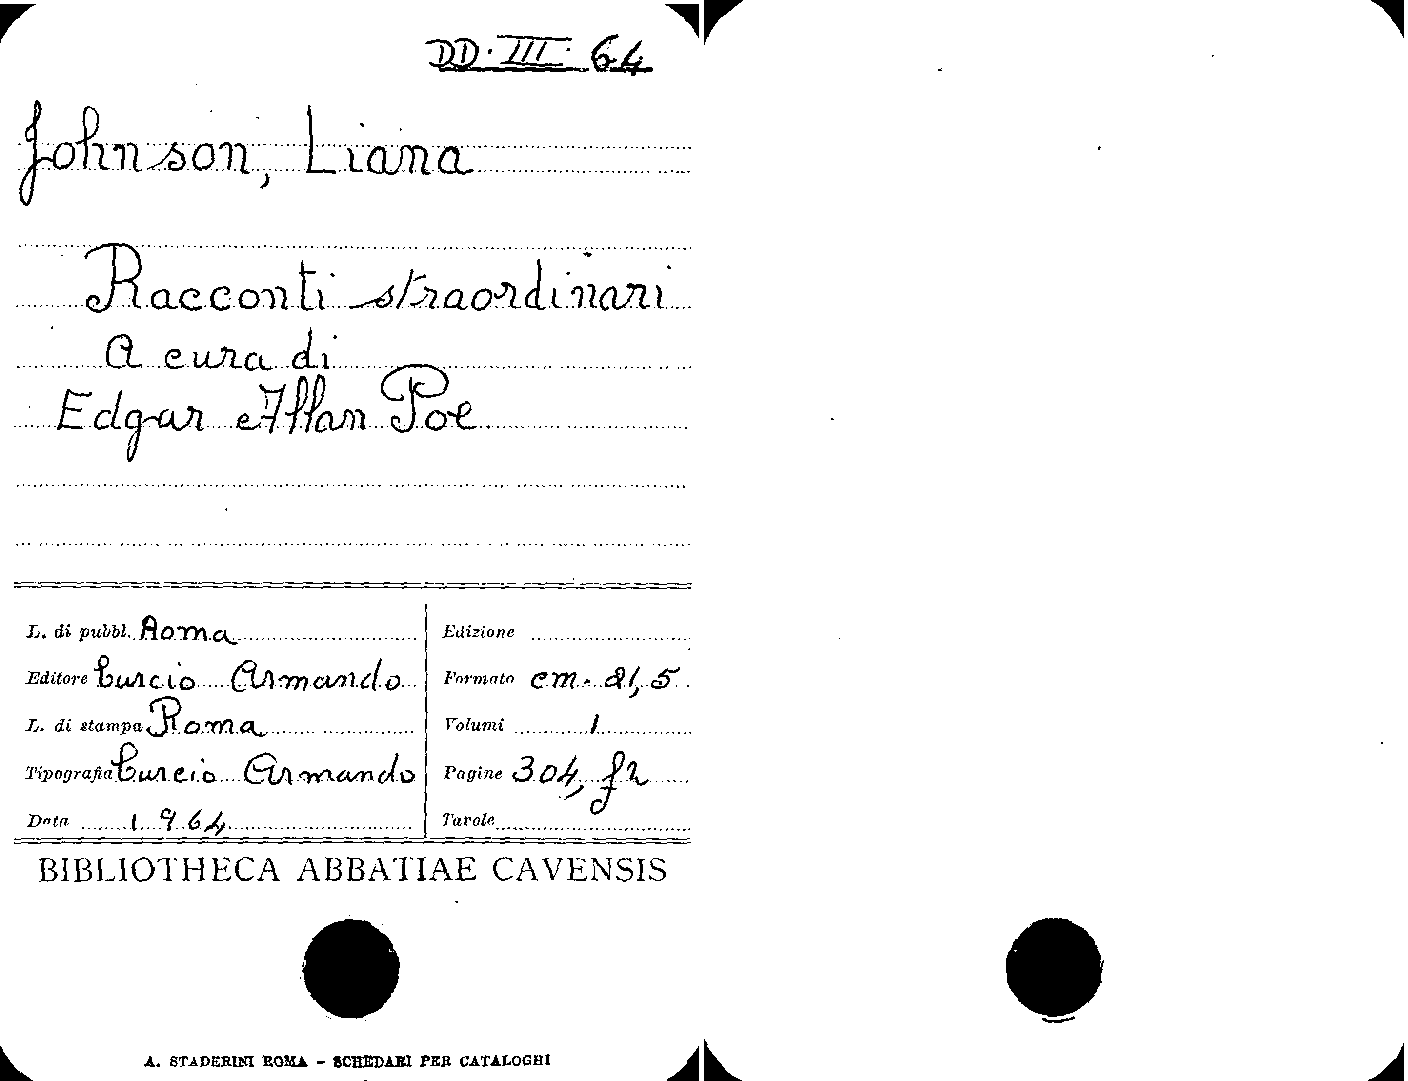 DD. III. 64
Johnson, Liana
Racconti straordinari
A cura di
Edgar Allan Poe
L. di pubbl. Roma
Editore Curcio Armando
L. di stampa Roma
Tipografia Curcio Armando
Data 1964
Edizione
Formato cm. 21,5
Volumi 1
Pagine 304, fr
Tavole
BIBLIOTHECA ABBATIAE CAVENSIS
A. STADERINI ROMA - SCHEDARI PER CATALOGHI